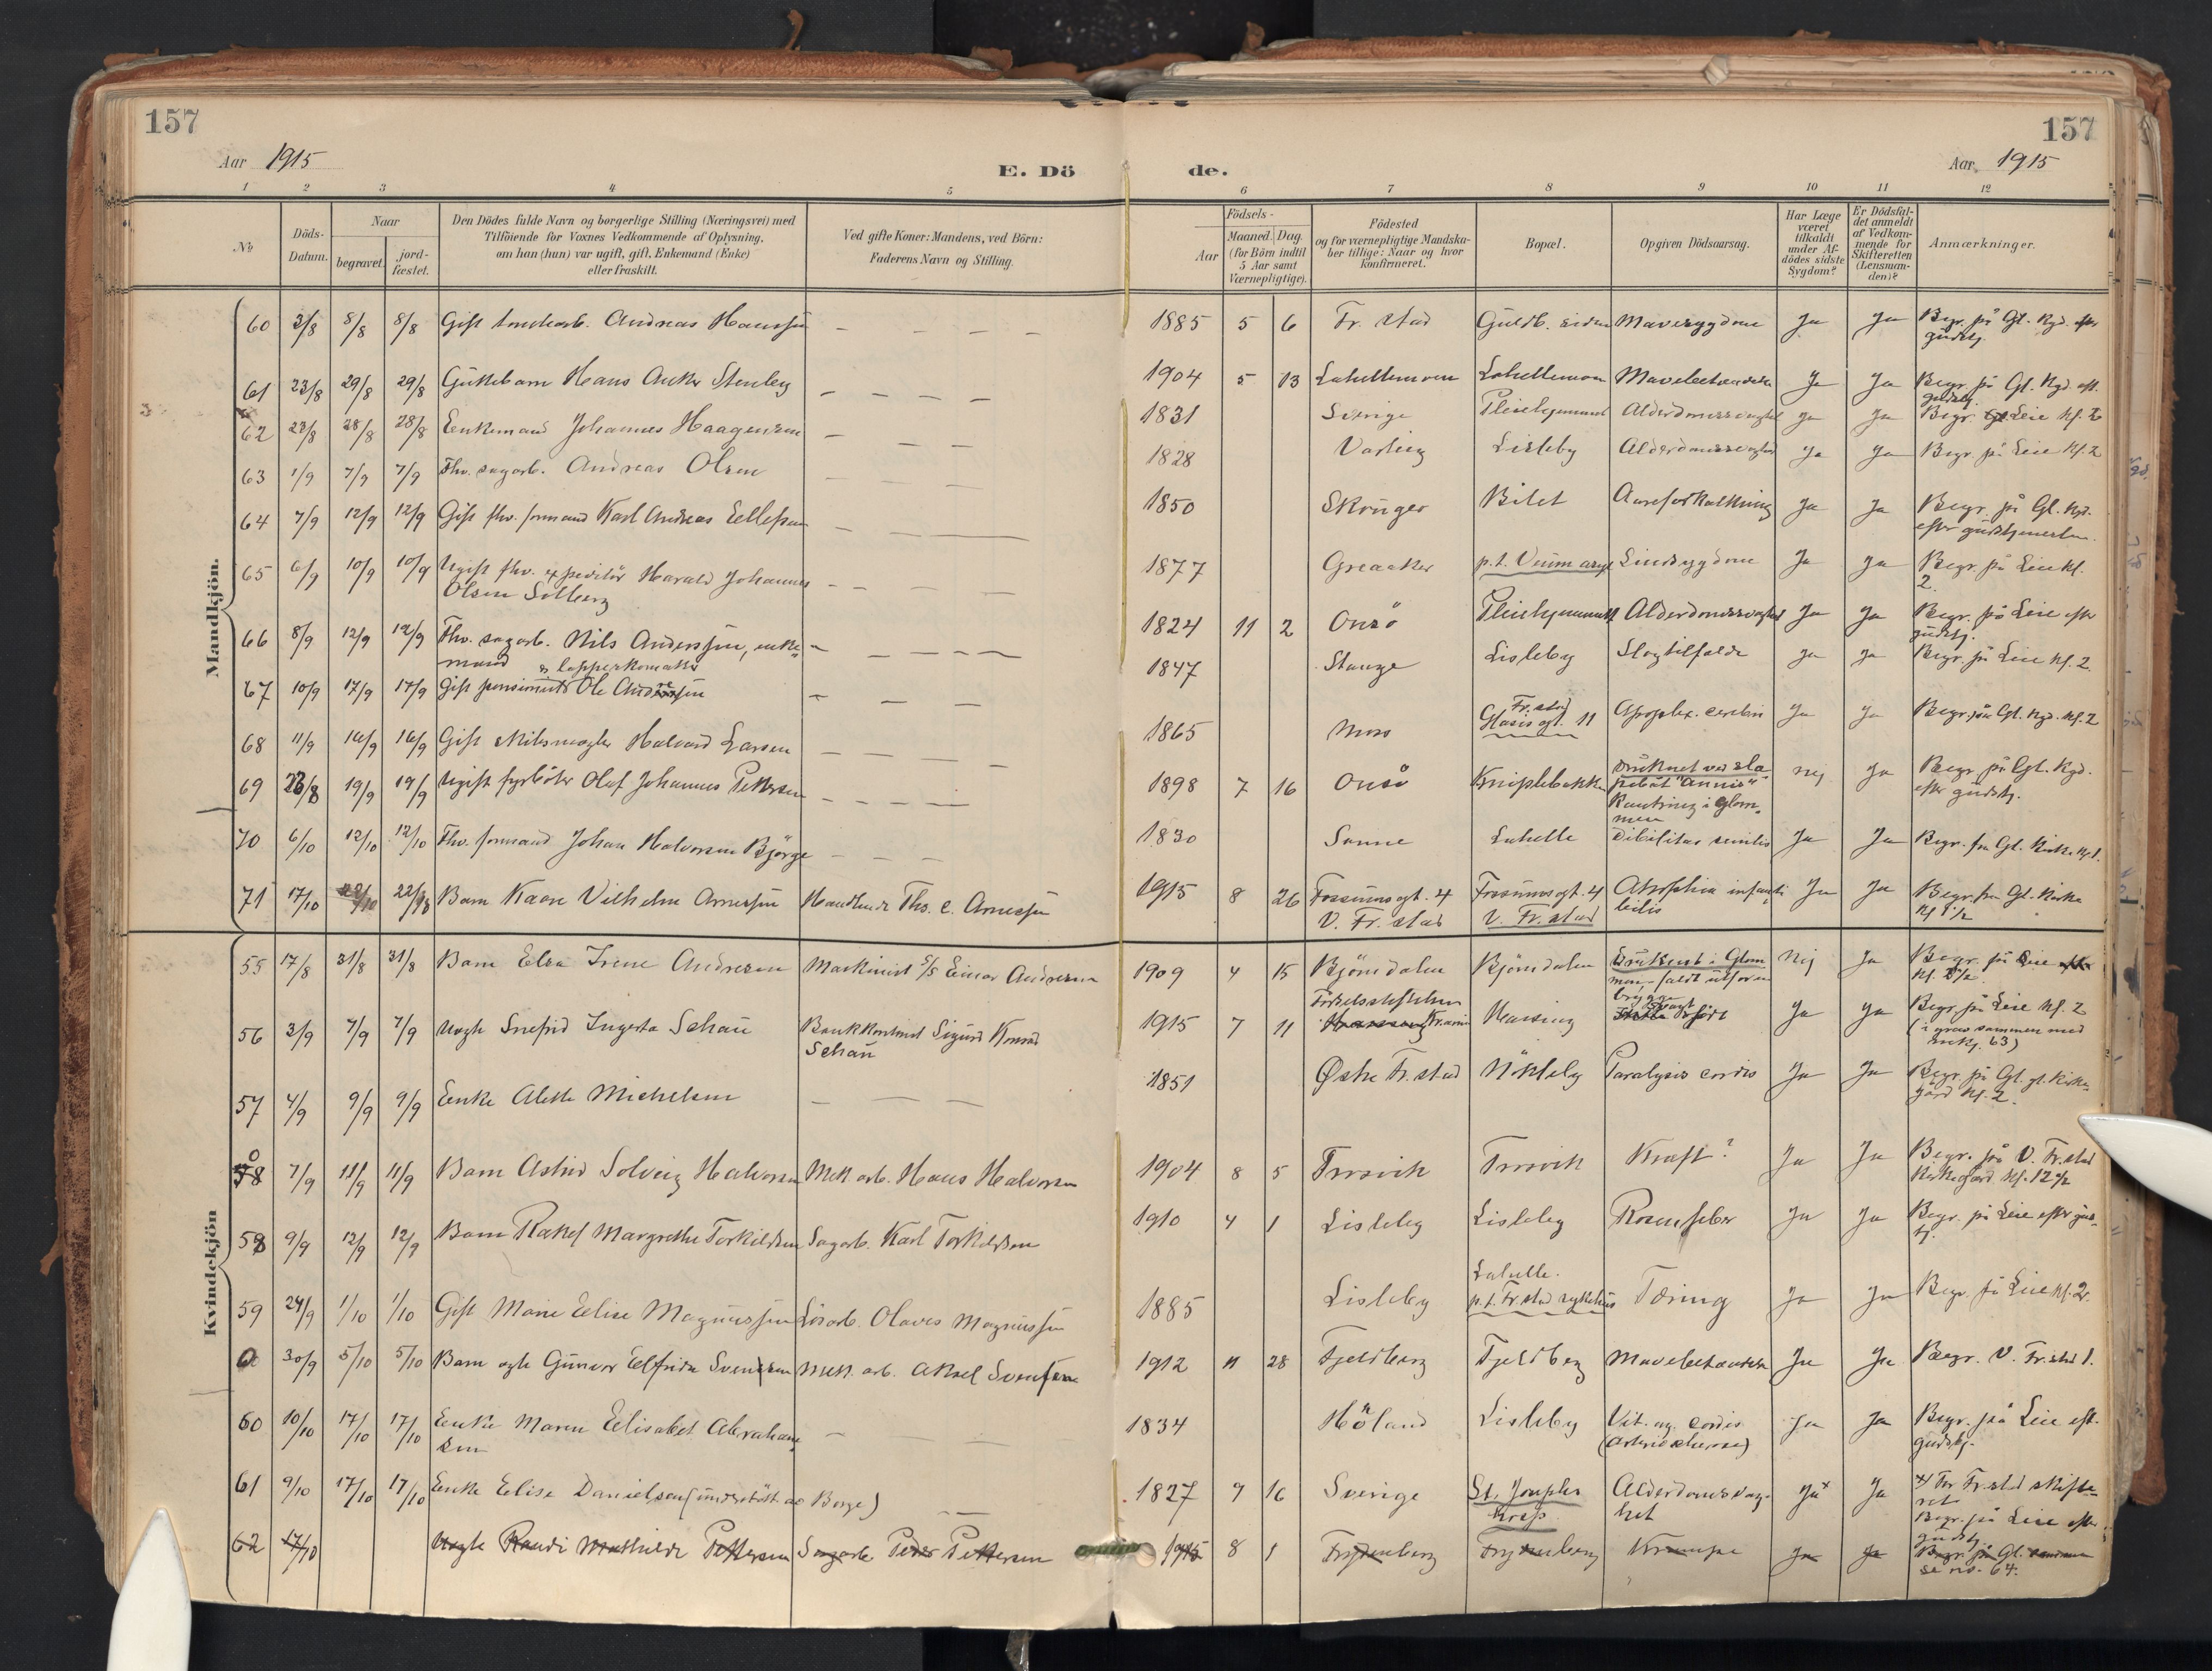 157
157
Aar 1915
E. Dö
de.
Aar 1915
1 2 3 4 5 6 7 8 9 10 11 12
No
Döds-Datum.
Naar
begravet.
jord-fæstet.
Den Dödes fulde Navn og borgerlige Stilling (Næringsvei) med
Tilföiende for Voxnes Vedkommende af Oplysning,
om han (hun) var ugift, gift, Enkemand (Enke)
eller fraskilt.
Ved gifte Koner: Mandens, ved Börn:
Faderens Navn og Stilling.
Födsels-
Aar
Maaned. Dag.
(for Börn indtil
5 Aar samt
Værnepligtige).
Födested
og for værnepligtige Mandska-
ber tillige: Naar og hvor
konfirmeret.
Bopæl.
Opgiven Dödsaarsag.
Har Læge
været
tilkaldt
under Af-
dödes sidste
Sygdom?
Er Dödsfal-
det anmeldt
af Vedkom-
mende for
Skifteretten
(Lensman-
den)?
Anmærkninger.
Mandkjön.
60 3/8 8/8 8/8 Gift Andreas Hanssen 1885 5 6 Fr. stad Guldb. siden Mavesygdom Ja Ja Begr. på Gl. Kgd. efter
gudstj.
61 23/8 29/8 29/8 Gutebarn Hans Anker Stenberg 1904 5 13 Lahellemoen Lahellemoen Ja Ja Begr. på Gl. Kgd. eft.
gudstj.
62 23/8 28/8 28/8 Enkemand Johannes Haagensen 1831 Sverige Pleiehjemmet Alderdomssvaghet Ja Ja Begr. Leie Kl. 2
63 1/9 7/9 7/9 Fhv. sagarb. Andreas Olsen 1828 Varteig Lisleby Alderdomssvaghet Ja Ja Begr. på Leie Kl. 2
64 7/9 12/9 12/9 Gift fhv. formand Karl Andreas Ellefsen 1850 Skrüger Bilet Aareforkalkning Ja Ja Begr. på Gl. Kgd.
efter gudstjenesten.
65 6/9 10/9 10/9 Ugift fhv. expeditör Harald Johannes
Olsen Solberg 1877 Greaaker p.t. Veum asyl Sindssygdom Ja Ja Begr. på Leie Kl.
2.
66 8/9 12/9 12/9 Fhv. sagarb. Nils Anderssen, enke=
mand 1824 11 2 Onsö Pleiehjemmet Alderdomssvaghet Ja Ja Begr. på Leie efter
gudstj.
67 10/9 17/9 17/9 Gift pensionist & lapperkomaker Ole Andersen 1847 Stange Lisleby Slagtilfælde Ja Ja Begr. på Leie Kl. 2.
68 11/9 16/9 16/9 Gift Halvard Larsen 1865 Moss Fr. stad
Glasis gt. 11 Apoplex. cerebri Ja Ja Begr. på Gl. Kgd. Kl. 2
69 23/8 19/9 19/9 Ugift fyrböter Olaf Johannes Pettersen 1898 7 16 Onsö Kniplebakken Druknet ved sla-
pebåt "Annis"
Kantring i Glom-
men Nei Ja Begr. på Gl. Kgd.
efter gudstj.
70 6/10 12/10 12/10 Fhv. formand Johan Halvorsen Bjørge 1830 Sanne Lahelle Debilitas senilis Ja Ja Begr. fra Gl. Kirke Kl. 1.
71 17/10 22/10 22/10 Barn Kaare Vilhelm Arnessen Handlende Ths. C. Arnessen 1915 8 26 Fossumsgt. 4
V. Fr. stad Fossumsgt. 4
V. Fr. stad Atrophia infanti
bilis Ja Ja Begr. fra Gl. Kirke
Kl 1 1/2
Kvindekjön
55 17/8 31/8 31/8 Barn Elsa Irene Andresen Maskinist S/S Einar Andresen 1909 4 15 Bjørndalen Bjørndalen Druknet i Glom
men - faldt utfor en
brygge Nei Ja Begr. på Leie
Kl. 5 1/2
56 3/9 7/9 7/9 Uegte Snefrid Ingerta Schau Bankkontorist Sigurd Konrad
Schau 1915 7 11 Födselsstiftelsen
Kr.ania Ja Ja Begr. på Leie Kl. 2
(i grav sammen med
mkj. 63)
57 4/9 9/9 9/9 Enke Alette Michelsen 1851 Østre Fr. stad Nökleby Paralysis cordis Ja Ja Begr. på Gl. gl. Kirke-
gård Kl. 2.
58 0 7/9 11/9 11/9 Barn Astrid Solveig Halvorsen Mek. arb. Hans Halvorsen 1904 8 5 Trosvik Trosvik Kræft? Ja Ja Begr. på V. Fr. stad
Kirkegård Kl. 12 1/2
58 9/9 12/9 12/9 Barn Rakel Margrethe Torkildsen Sagarb. Karl Torkildsen 1910 4 1 Lisleby Lisleby Rosenfeber Ja Ja Begr. på Leie efter gus-
tj.
59 24/9 1/10 1/10 Gift Marie Elise Magnussen Lösarb. Olaves Magnussen 1885 Lisleby Lahelle.
p.t. Fr. stad sykehus Tæring Ja Ja Begr. på Leie Kl. 2.
0 30/9 5/10 5/10 Barn egte Gunvor Elfrida Svendsen Mek. arb. Aksel Svendsen 1912 11 28 Fjeldberg Fjeldberg Ja Ja Begr. V. Fr. stad 1.
60 10/10 17/10 17/10 Enke Maren Elisabet Abraham
sen 1834 Höland Lisleby Vit. org. cordis
(Arteriosclerose) Ja Ja Begr. på Leie eft.
gudstj.
61 9/10 17/10 17/10 Enke Elise Danielsen (understöttet av Borge) 1827 9 16 Sverige St. Josephs
hosp. Alderdomssvag-
het Ja x Ja x/ For Fr.stad skifte-
ret
Begr. på Leie efter
gudstj.
62 17/10 Uegte Randi Mathilde Pettersen Sagarb. Peder Pettersen 1915 8 1 Frydenberg Frydenberg Krampe Ja Ja Begr. på Gl.
se no. 64.